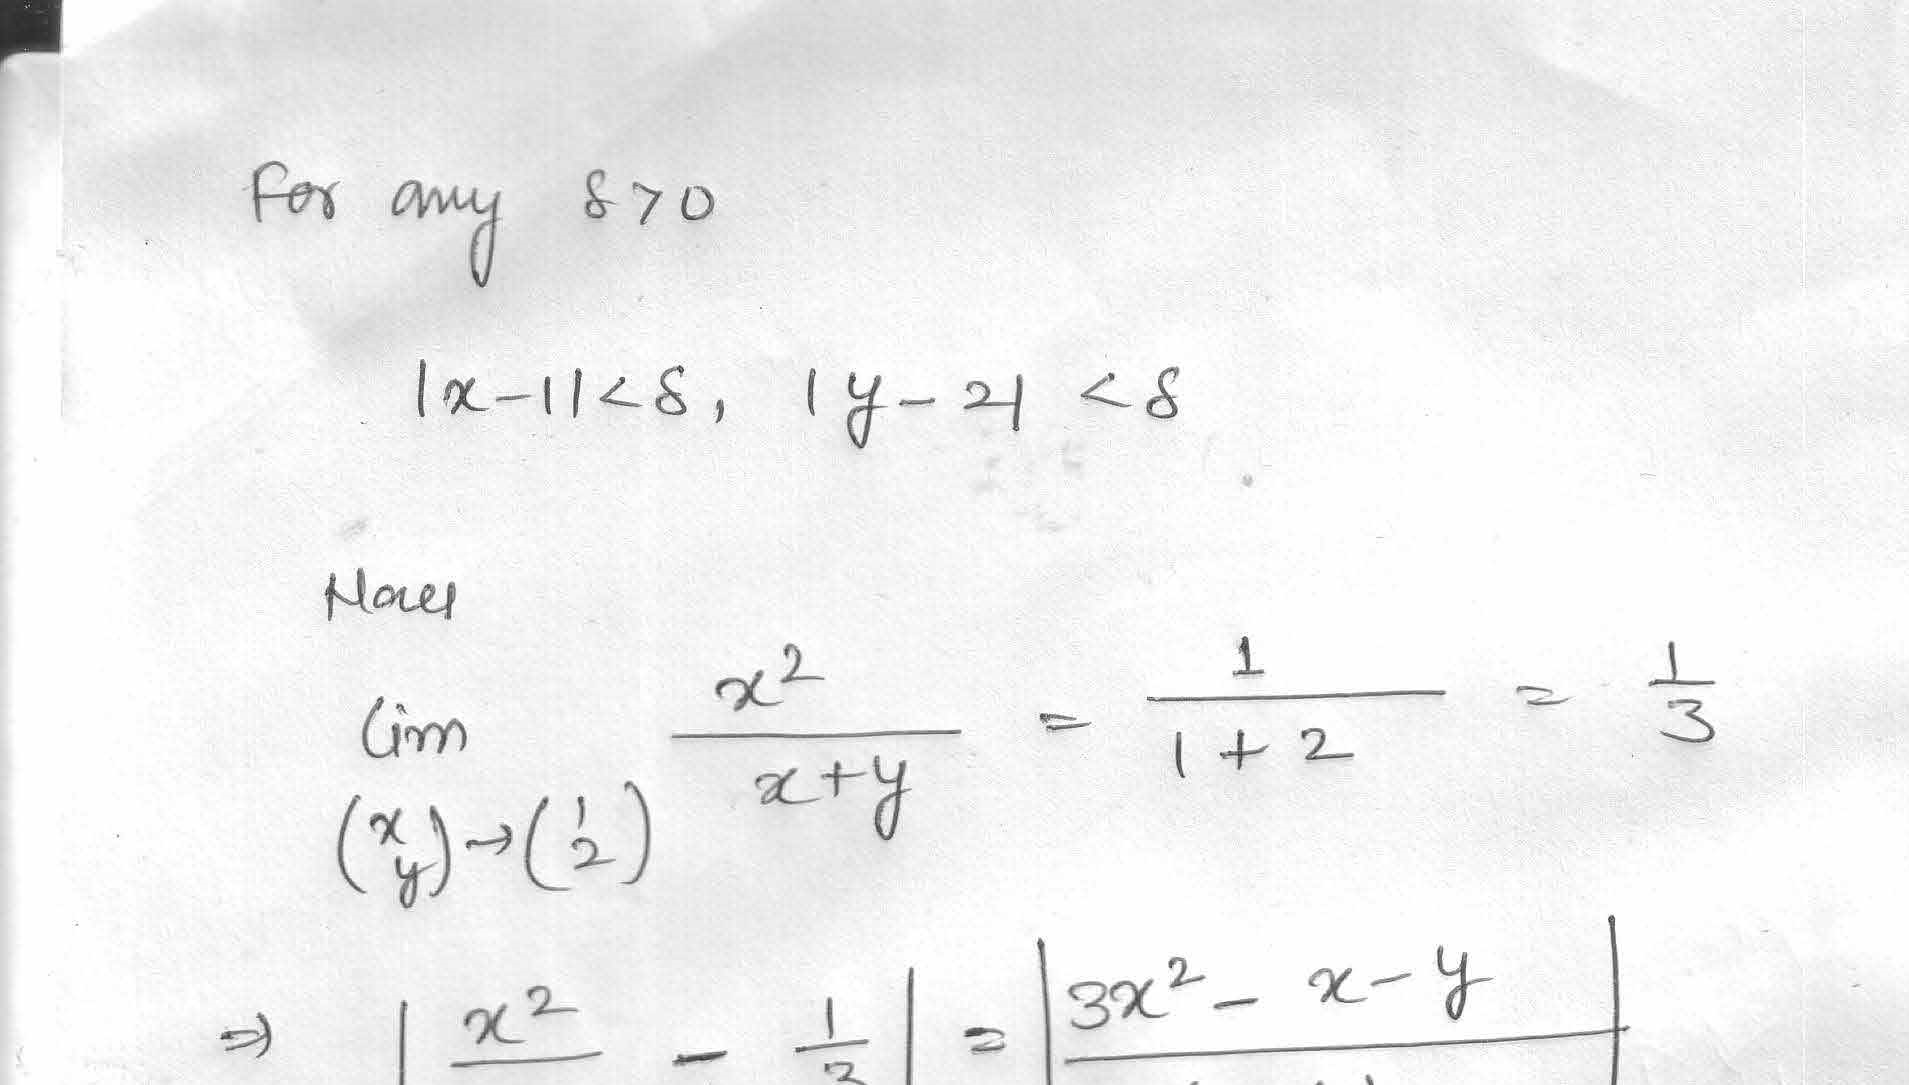 For any δ>0
|x-1|<δ, |y-2| <δ
Now
lim (x y)→(1 2) x²/(x+y) = 1/(1+2) = 1/3
⇒ | x² - 1/3 | = | 3x² - x - y |